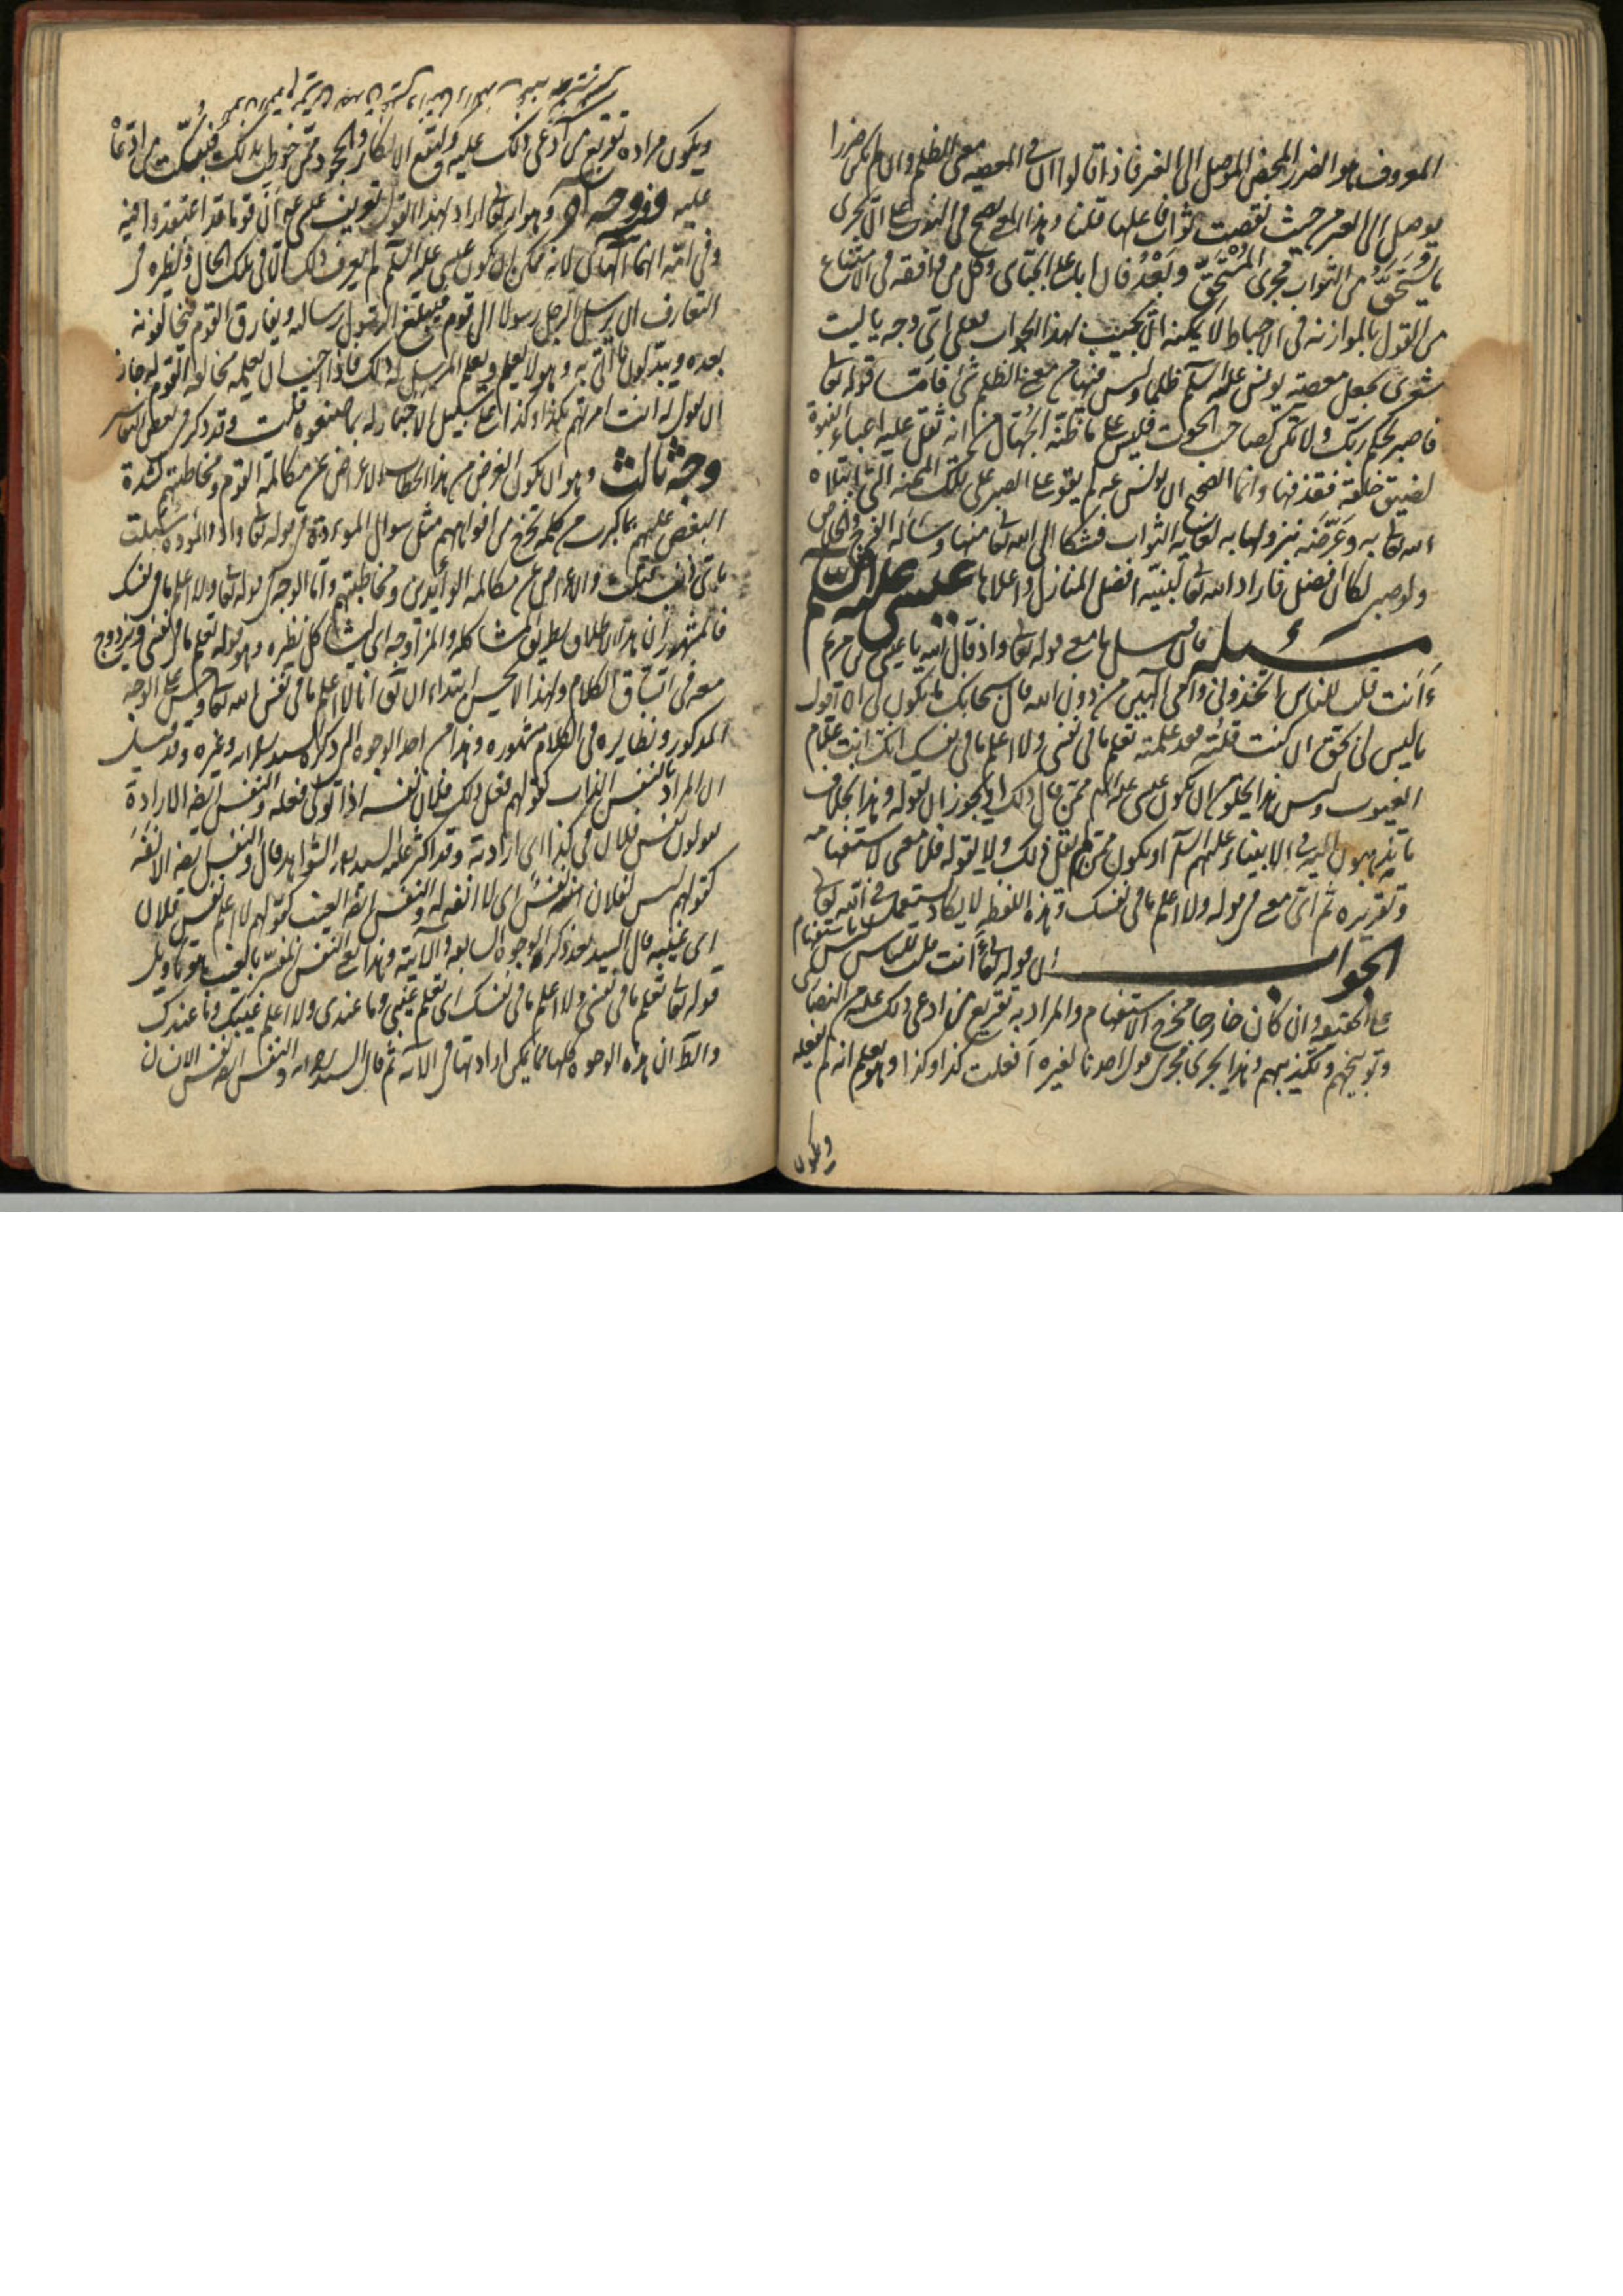 المعروف هو الضرر المحض الموصل الى الغير فاذا قالوا ان فى المعصيه معنى الظلم وان لم يكن ضررا
يوصل الى الغير من حيث نقصت ثواب فاعلها قلنا وهذا لا يصح فى الثوب على ان يجرى
ما يستحق من الثواب مجرى المستحق وبعد فان ابا على الجبائى وكل من وافقه فى الامتناع
من القول بالموازنه فى الاحباط لا يمكنه ان يجيب بهذا الجواب فعلى اى وجه يا ليت
شعرى يجعل معصيه يونس عليه السلم ظلما وليس فيها من معنى الظلم شئ فاما قوله تعالى
فاصبر لحكم ربك ولا تكن كصاحب الحوت فليس على ما ظنه الجهال من انه ثقل عليه اعباء النبوة
لضيق خلقه فقذفها وانما الصحيح ان يونس عم لم يقو على الصبر على تلك المحنه التى ابتلاه
الله تعالى به وعرضه بنزولها به لغايه الثواب فشكا الى الله تعالى منها وسأله الفرج والخلاص
ولو صبر لكان افضل فاراد الله تعالى لنبيه افضل المنازل واعلاها عيسى عليه السلم
مسئله فان قيل ما معنى قوله تعالى واذ قال الله يا عيسى بن مريم
ءانت قلت للناس اتخذونى وامى الهين من دون الله قال سبحانك ما يكون لى ان اقول
ما ليس لى بحق ان كنت قلته فقد علمته تعلم ما فى نفسى ولا اعلم ما فى نفسك انك انت علام
الغيوب وليس هذا يخلو من ان يكون عيسى عليه السلم ممن قال ذلك او يجوز ان يقوله وهذا خلاف
ما تذهبون اليه فى الانبياء عليهم السلم او يكون ممن لم يقل ذلك ولا يقوله فلا معنى لاستفهامه
وتقريره ثم اى معنى فى قوله ولا اعلم ما فى نفسك وهذه اللفظه لا يكاد تستعمل فى الله تعالى
الجواب ان قوله تعالى ءانت قلت للناس ليس باستفهام
على الحقيقه وان كان خارجا مخرج الاستفهام والمراد به تقريع من ادعى ذلك عليه من النصارى
وتوبيخهم وتكذيبهم وهذا يجرى مجرى قول احدنا لغيره أفعلت كذا وكذا وهو يعلم انه لم يفعله
ويكون
ويكون مراده تقريع من ادعى ذلك عليه وليقع الانكار والجحود ممن خوطب بذلك فيبكت من ادعاه
عليه ووجه آخر وهو انه تعالى اراد بهذا القول تعريف عيسى عم ان قوما قد اعتقدوا فيه
وفى امه انهما الهان لانه ممكن ان يكون عيسى عليه السلم لم يعرف ذلك الا فى تلك الحال ونظيره فى
التعارف ان يرسل الرجل رسولا الى قوم فيبلغ الرسول رساله ويفارق القوم فيخالفونه
بعده ويبدلون ما اتى به وهو لا يعلم ويعلم المرسل له ذلك فاذا احب ان يعلمه مخالفه القوم له جاز
ان يقول له ءانت امرتهم بكذا وكذا على سبيل الاخبار له بما صنعوه قلت وقد ذكر فى بعض التفاسير
وجه ثالث وهو ان يكون الغرض من هذا الخطاب الاعراض عن مكالمه القوم ومخاطبتهم لشدة
البغض عليهم بما كبرت من كلمه تخرج من افواههم مثل سوال الموءودة فى قوله تعالى واذا الموءودة سئلت
باى ذنب قتلت والاعراض عن مكالمه الوائدين ومخاطبتهم واما الوجه فى قوله تعالى ولا اعلم ما فى نفسك
فالمشهور ان هذا الاطلاق بطريق المشاكله والمزاوجه اى ليشاكل نظيره وهو قوله تعلم ما فى نفسى ويزدوج
معه فى اتساق الكلام ولهذا لا يحسن ابتداء ان يقول انا لا اعلم ما فى نفس الله تعالى وحسن على الوجه
المذكور ونظايره فى الكلام مشهوره وهذا من احد الوجوه التى ذكرها السيد رحمه الله وغيره وقد قيل
ان المراد بالنفس الذات كقولهم فعل ذلك فلان نفسه اذا تولى فعله والنفس ايضا الارادة
يقولون نفس فلان فى كذا اى ارادته وقد اكثر عليه السيد بهذه الشواهد قال والنفس ايضا الانفه
كقولهم ليس لفلان نفس اى لا انفه له والنفس ايضا الغيب كقولهم لا اعلم نفس فلان
اى غيبه قال السيد بعد ذكر الوجوه السابعه والآتيه وهذا يعنى النفس المفسر بالغيب هو تاويل
قوله تعالى تعلم ما فى نفسى ولا اعلم ما فى نفسك اى تعلم غيبى وما عندى ولا اعلم غيبك وما عندك
والظ ان هذه الوجوه كلها مما يمكن ارادتها فى الآيه ثم قال السيد رحمه الله والنفس ايضا نفس الانسان